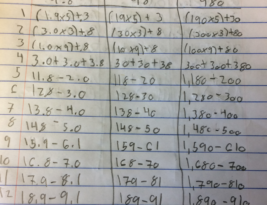 1 (1.9x5)+3 (19x5)+3 (190x5)+30
2 (3.0x3)+.8 (30x3)+8 (300x3)+80
3 (1.0x9)+.8 (10x9)+8 (100x9)+80
4 3.0+3.0+3.8 30+30+38 300+300+380
5 11.8-2.0 118-20 1,180-200
6 12.8-3.0 128-30 1,280-300
7 13.8-4.0 138-40 1,380-400
8 14.8-5.0 148-50 1,480-500
9 15.9-6.1 159-61 1,590-610
10 16.8-7.0 168-70 1,680-700
11 17.9-8.1 179-81 1,790-810
12 18.9-9.1 189-91 1,890-910